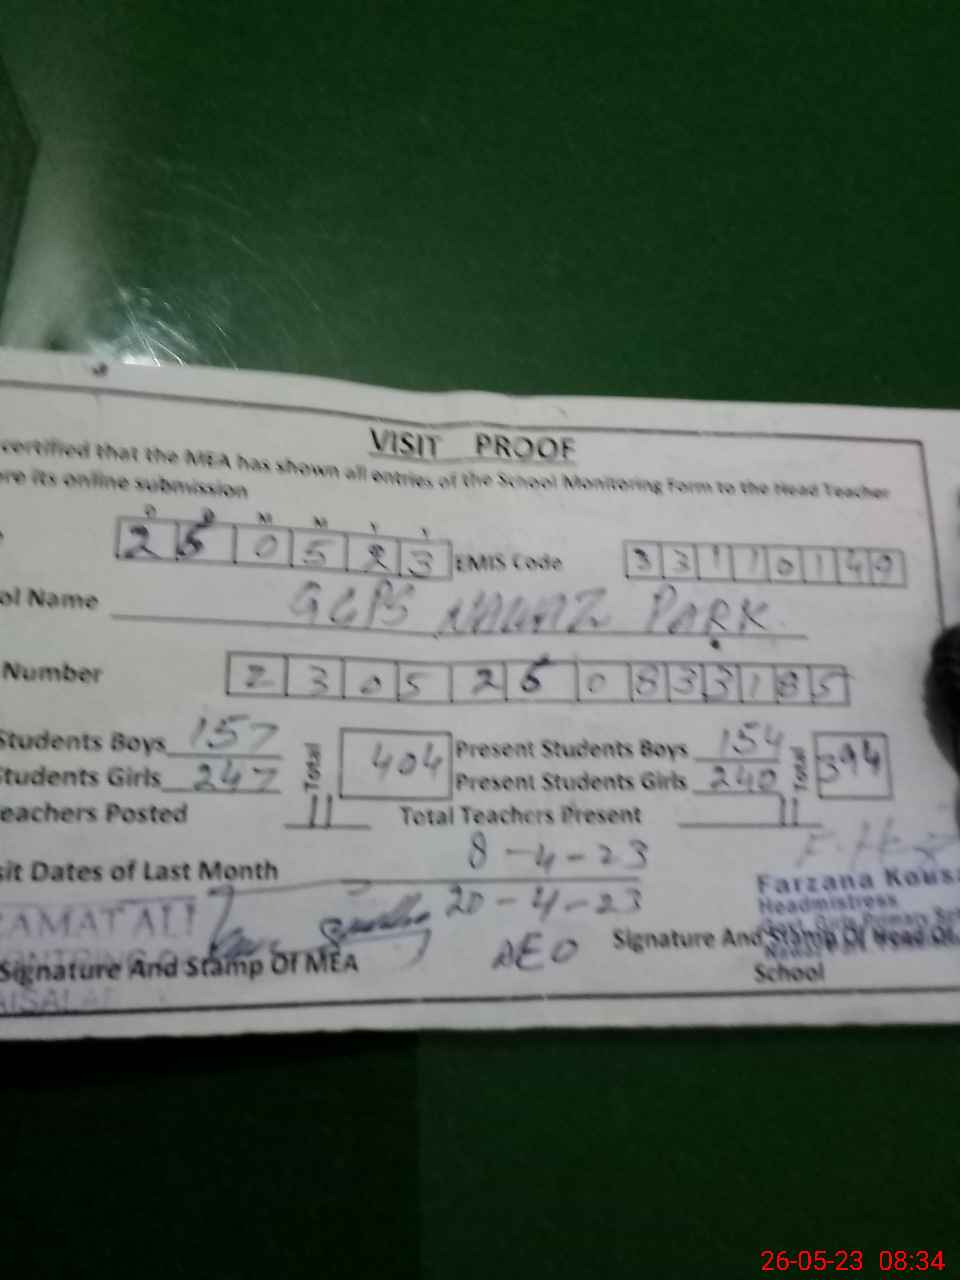 VISIT PROOF
certified that the MEA has shown all entries of the School Monitoring Form to the Head Teacher
ore its online submission
D D M M Y Y
2 5 0 5 2 3 EMIS Code 3 3 1 1 0 1 4 9
ol Name GGPS NAWAZ PARK
Number 2 3 0 5 2 5 0 8 3 3 1 8 5
Students Boys 157 Total 404 Present Students Boys 154 Total 394
Students Girls 247 Present Students Girls 240
eachers Posted 11 Total Teachers Present 11
sit Dates of Last Month 8-4-23
20-4-23
Farzana Kous
Headmistress
Girls Primary
AMAT ALI
AEO
Signature And Stamp Of MEA
Signature And Stamp Of Head Of
School
AISALA
26-05-23 08:34